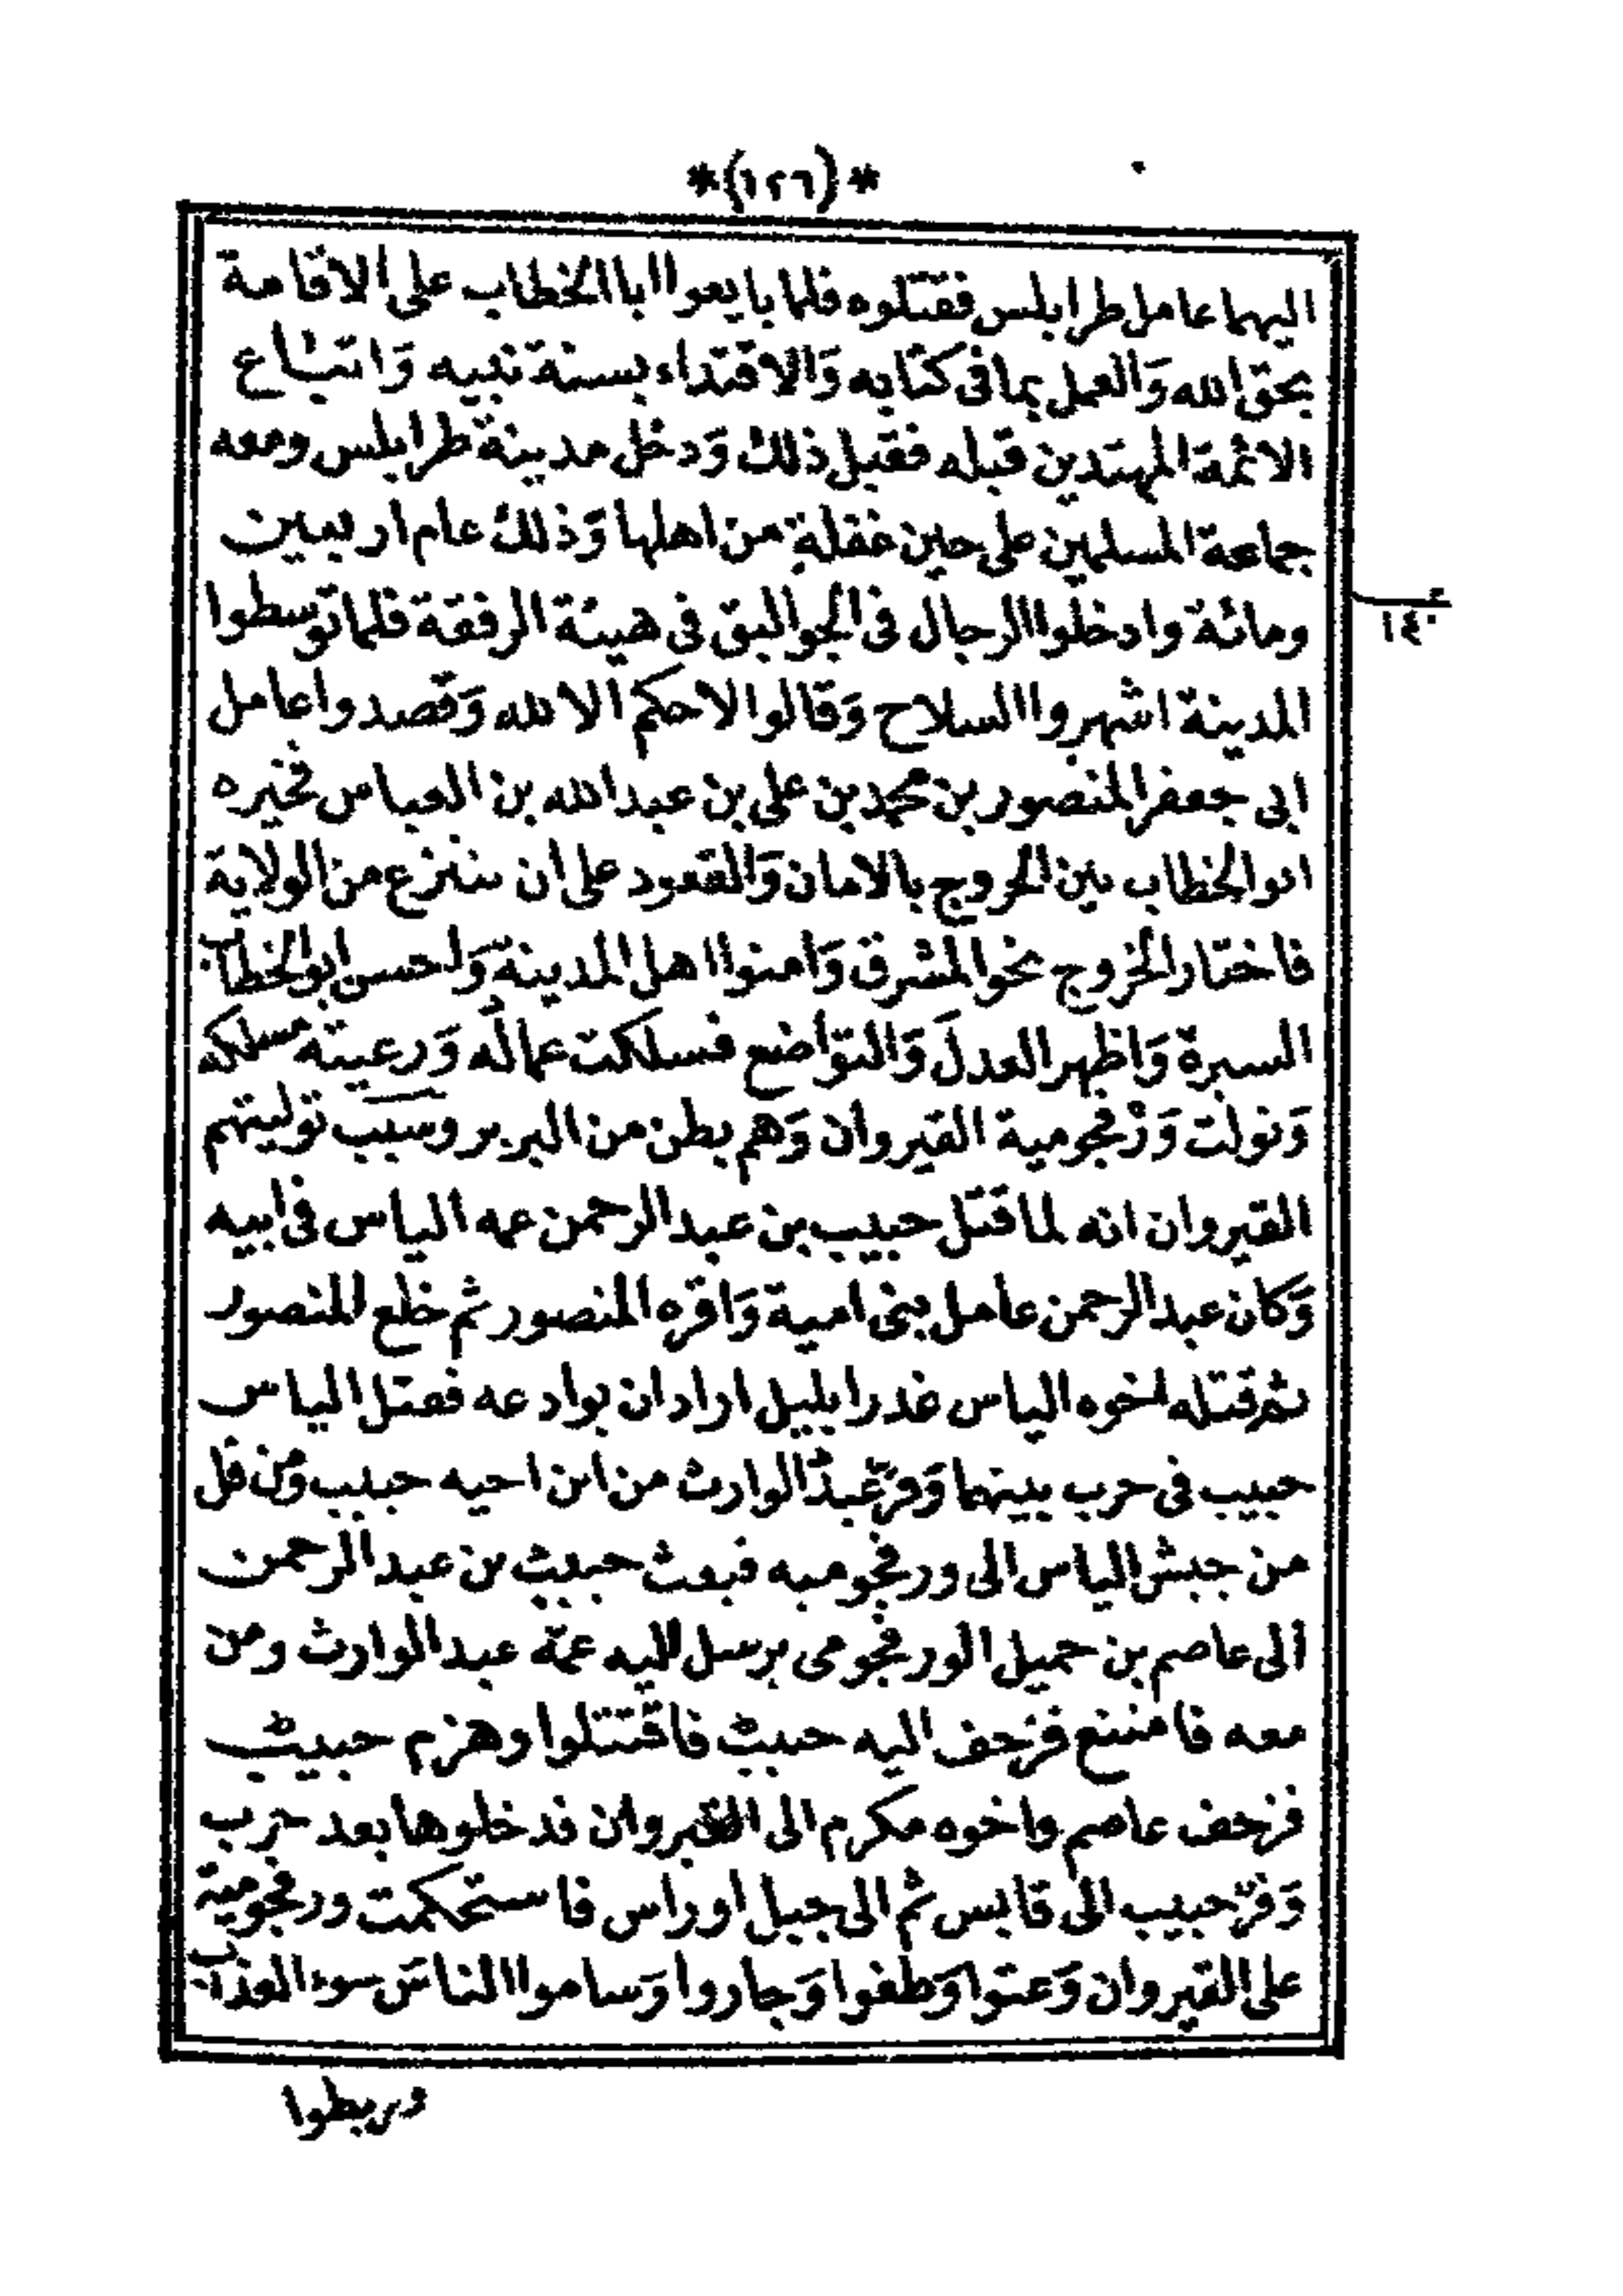 *(١٢٦)*
اليهما عامل طرابلس فقتلوه فلما بايعوا ابا الخطاب على الاقامة
بحق الله وَالعمل بما فى كتابه وَالاقتداء بسنة نبيه وَاتباع
الائمة المهتدين قبله فقبل ذلك وَدخل مدينة طرابلس ومعه
جماعة المسلمين على حين غفلةٍ من اهلها وَذلك عام اربعين
ومائة وادخلوا الرجال فى الجواليق فى هيئة الرفقة فلما توسطوا
١٤٠
المدينة اشهروا السلاح وَقالوا لا حكم الا لله وَقصدوا عامل
ابى جعفر المنصور بن محمد بن على بن عبد الله بن العباس فخيره
ابو الخطاب بين الخروج بالامان وَالقعود على ان ينزع من الولاية
فاختار الخروج نحو المشرق وَامنوا اهل المدينة وَاحسن ابو الخطاب
السيرة وَاظهر العدلَ وَالتواضع فسلكت عماله وَرعيته مسلكه
وَتولت وَرْفجومية القيروان وَهم بطن من البربر وسبب توليتهم
القيروان انه لما قتل حبيب بن عبد الرحمن عمه الياس فى ابيه
وَكان عبد الرحمن عامل بنى امية وَاقره المنصور ثم خلع المنصور
ثم قتله اخوه الياس غدرا بليل اراد ان يوادعه فقتل الياس
حبيب فى حرب بينهما وَفرّ عبدُ الوارث من ابن اخيه حبيب وَمن فل
من جيش الياس الى ورفجوميه فبعث حبيب بن عبد الرحمن
الى عاصم بن حميل الورفجومى يرسل اليه عمّه عبد الوارث ومن
معه فامتنع فزحف اليه حبيبٌ فاقتتلوا وهزم حبيبٌ
فزحف عاصم واخوه مكرم الى القيروان فدخلوها بعد حرب
وَفرّ حبيب الى قابس ثم الى جبل اوراس فاستحكمت ورفجومية
على القيروان وَعتوا وَطغوا وَجاروا وَساموا الناسَ سوء العذاب
وربطوا